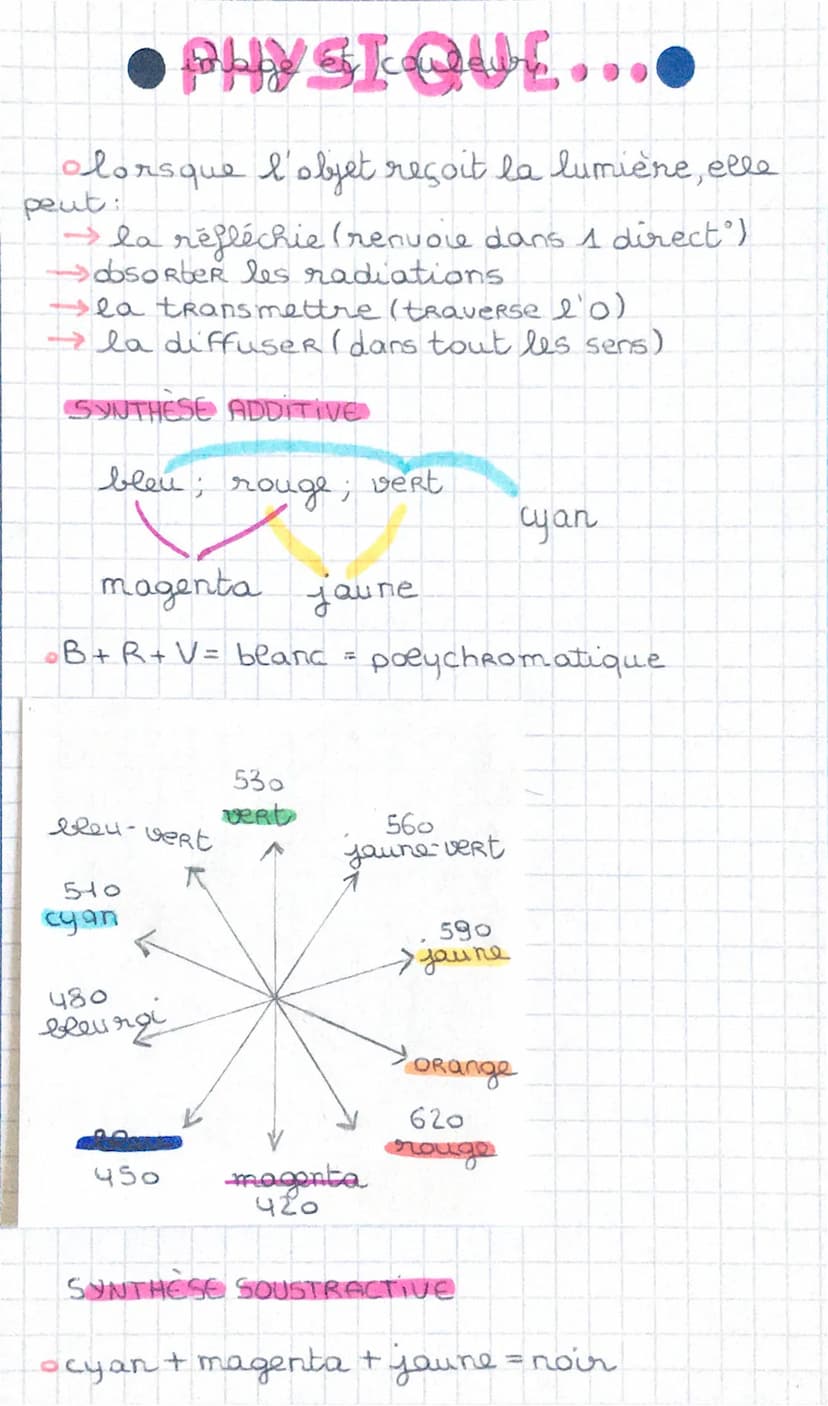 PHYSIQUE...
image et couleur
lorsque l'objet reçoit la lumière, elle
peut:
→ la réfléchie (renvoie dans 1 direct°)
→ absorber les radiations
→ la transmettre (traverse l'O)
→ la diffuser (dans tout les sens)
SYNTHÈSE ADDITIVE
bleu; rouge; vert
cyan
magenta jaune
B + R + V = blanc = polychromatique
530
vert
560
bleu-vert
jaune-vert
510
cyan
590
jaune
480
bleu roi
orange
620
rouge
bleu
450
magenta
420
SYNTHÈSE SOUSTRACTIVE
cyan + magenta + jaune = noir